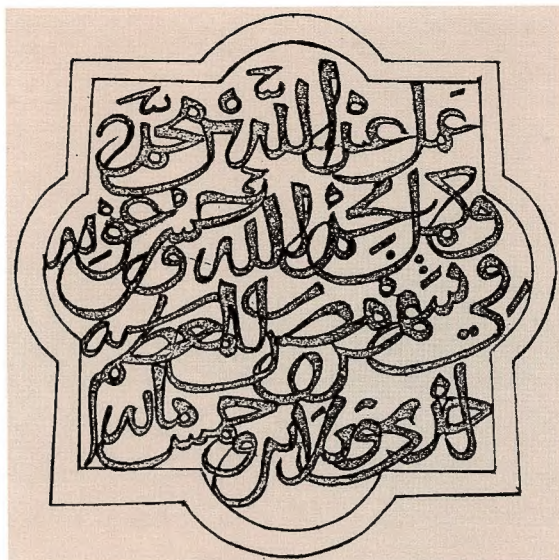 عمل عبد الله بن محمد
وكمل بحمد الله وحسن عونه
في شهر رمضان المعظم
احدى وثلاثين وخمس مائة